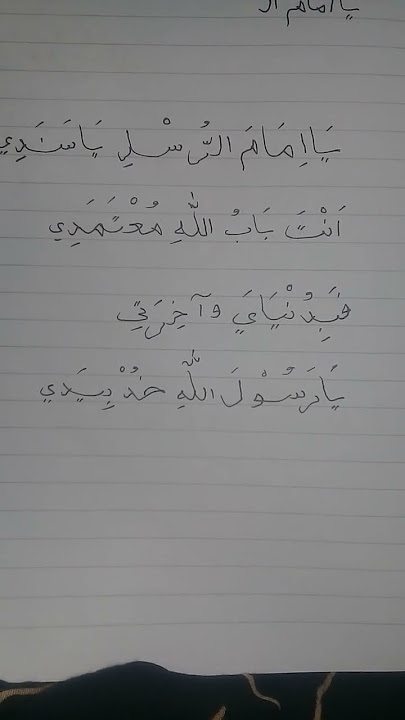 يا امام الر
يَااِمَامَ الرُّسْلِ يَاسَنَدِي
اَنْتَ بَابُ اللّٰهِ مُعْتَمَدِي
فَبِدُنْيَايَ وَآخِرَتِي
يَارَسُوْلَ اللّٰهِ خُذْ بِيَدِي